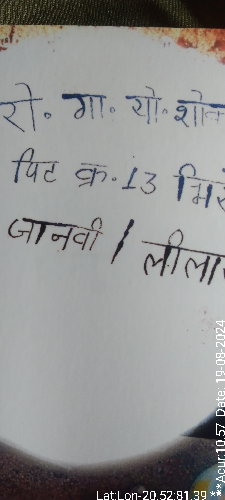 रो. गा. यो. शोक
पिट क्र. 13 मि
जानवी / लीला
Lat:Lon-20.52:81.39
***Acur:10.57 Date: 19-08-2024